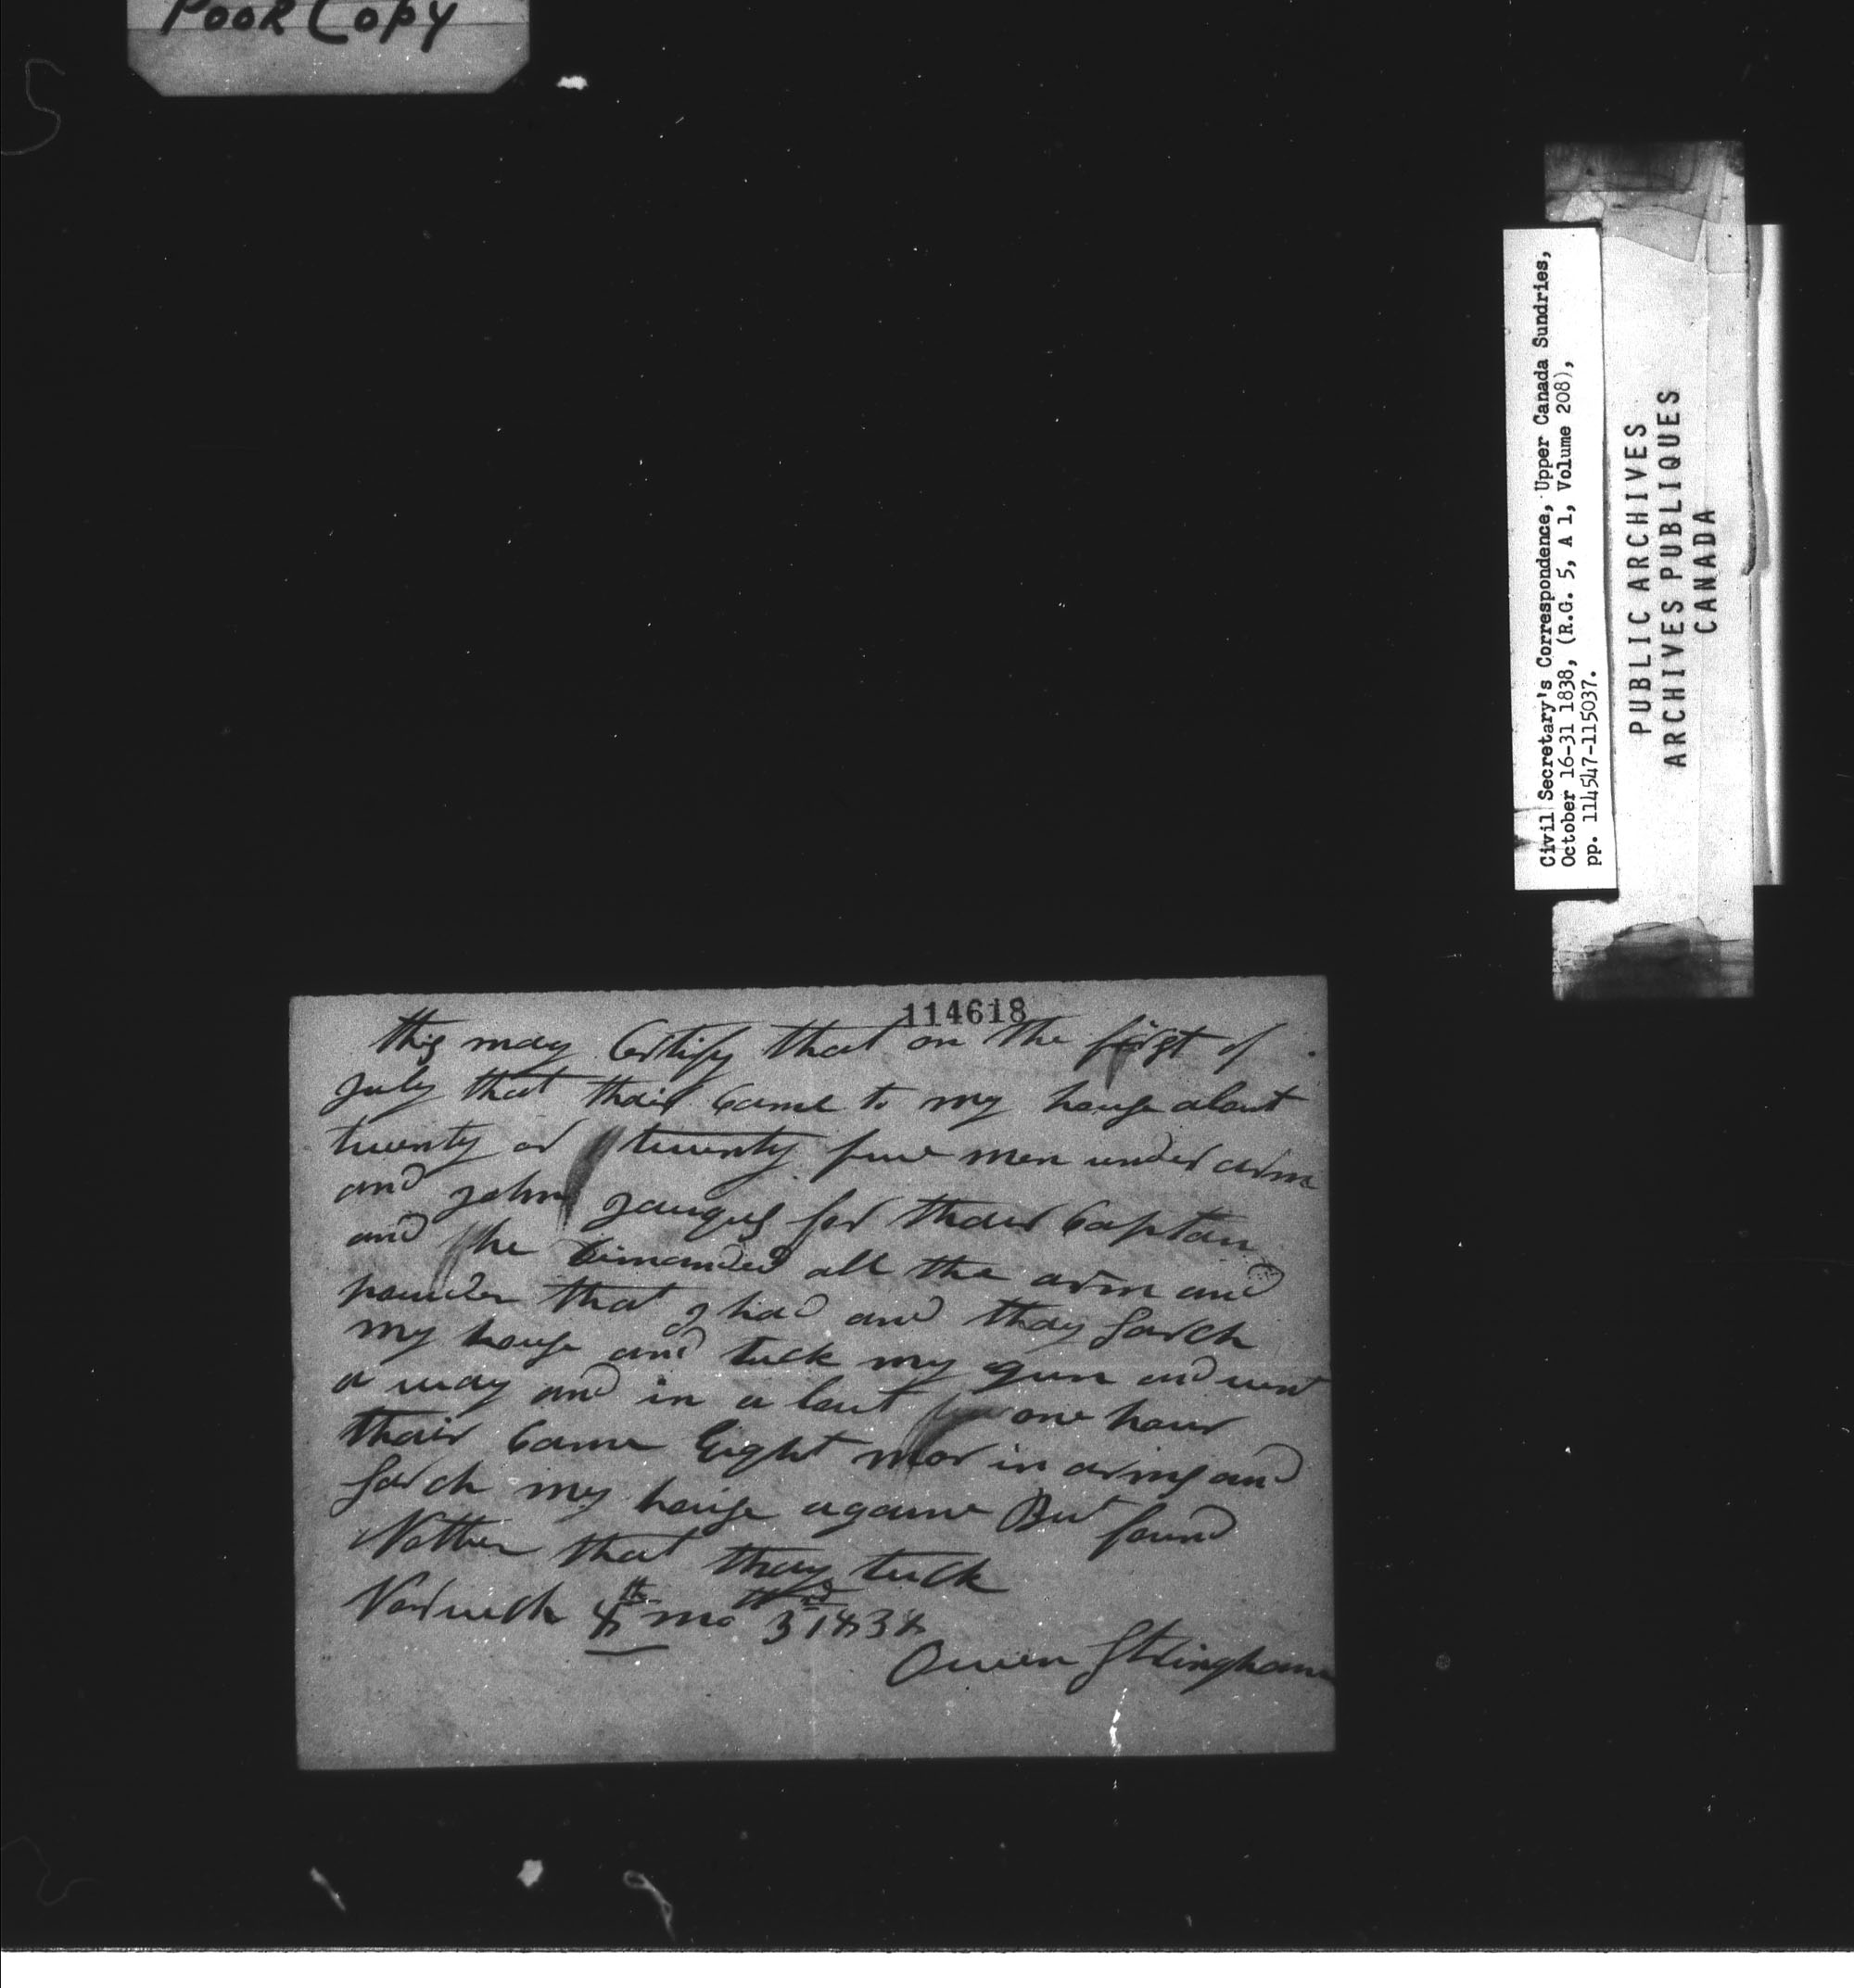 Poor Copy
Civil Secretary's Correspondence, Upper Canada Sundries,
October 16-31 1838, (R.G. 5, A 1, Volume 208),
pp. 114547-115037.
PUBLIC ARCHIVES
ARCHIVES PUBLIQUES
CANADA
114618
this may Certify that on the first of
July that thair Came to my house about
twenty or twenty five men under arm
and John Jaques for thair Captain
and he Dimanded all the arm and
pouder that I had and thay sarch
my house and tuck my gun and went
a way and in a bout one hour
thair Came Eight mor in arms and
sarch my house againe But found
Nothen that thay tuck
Norwich 8th mo 3rd 1838
Owen Stringham